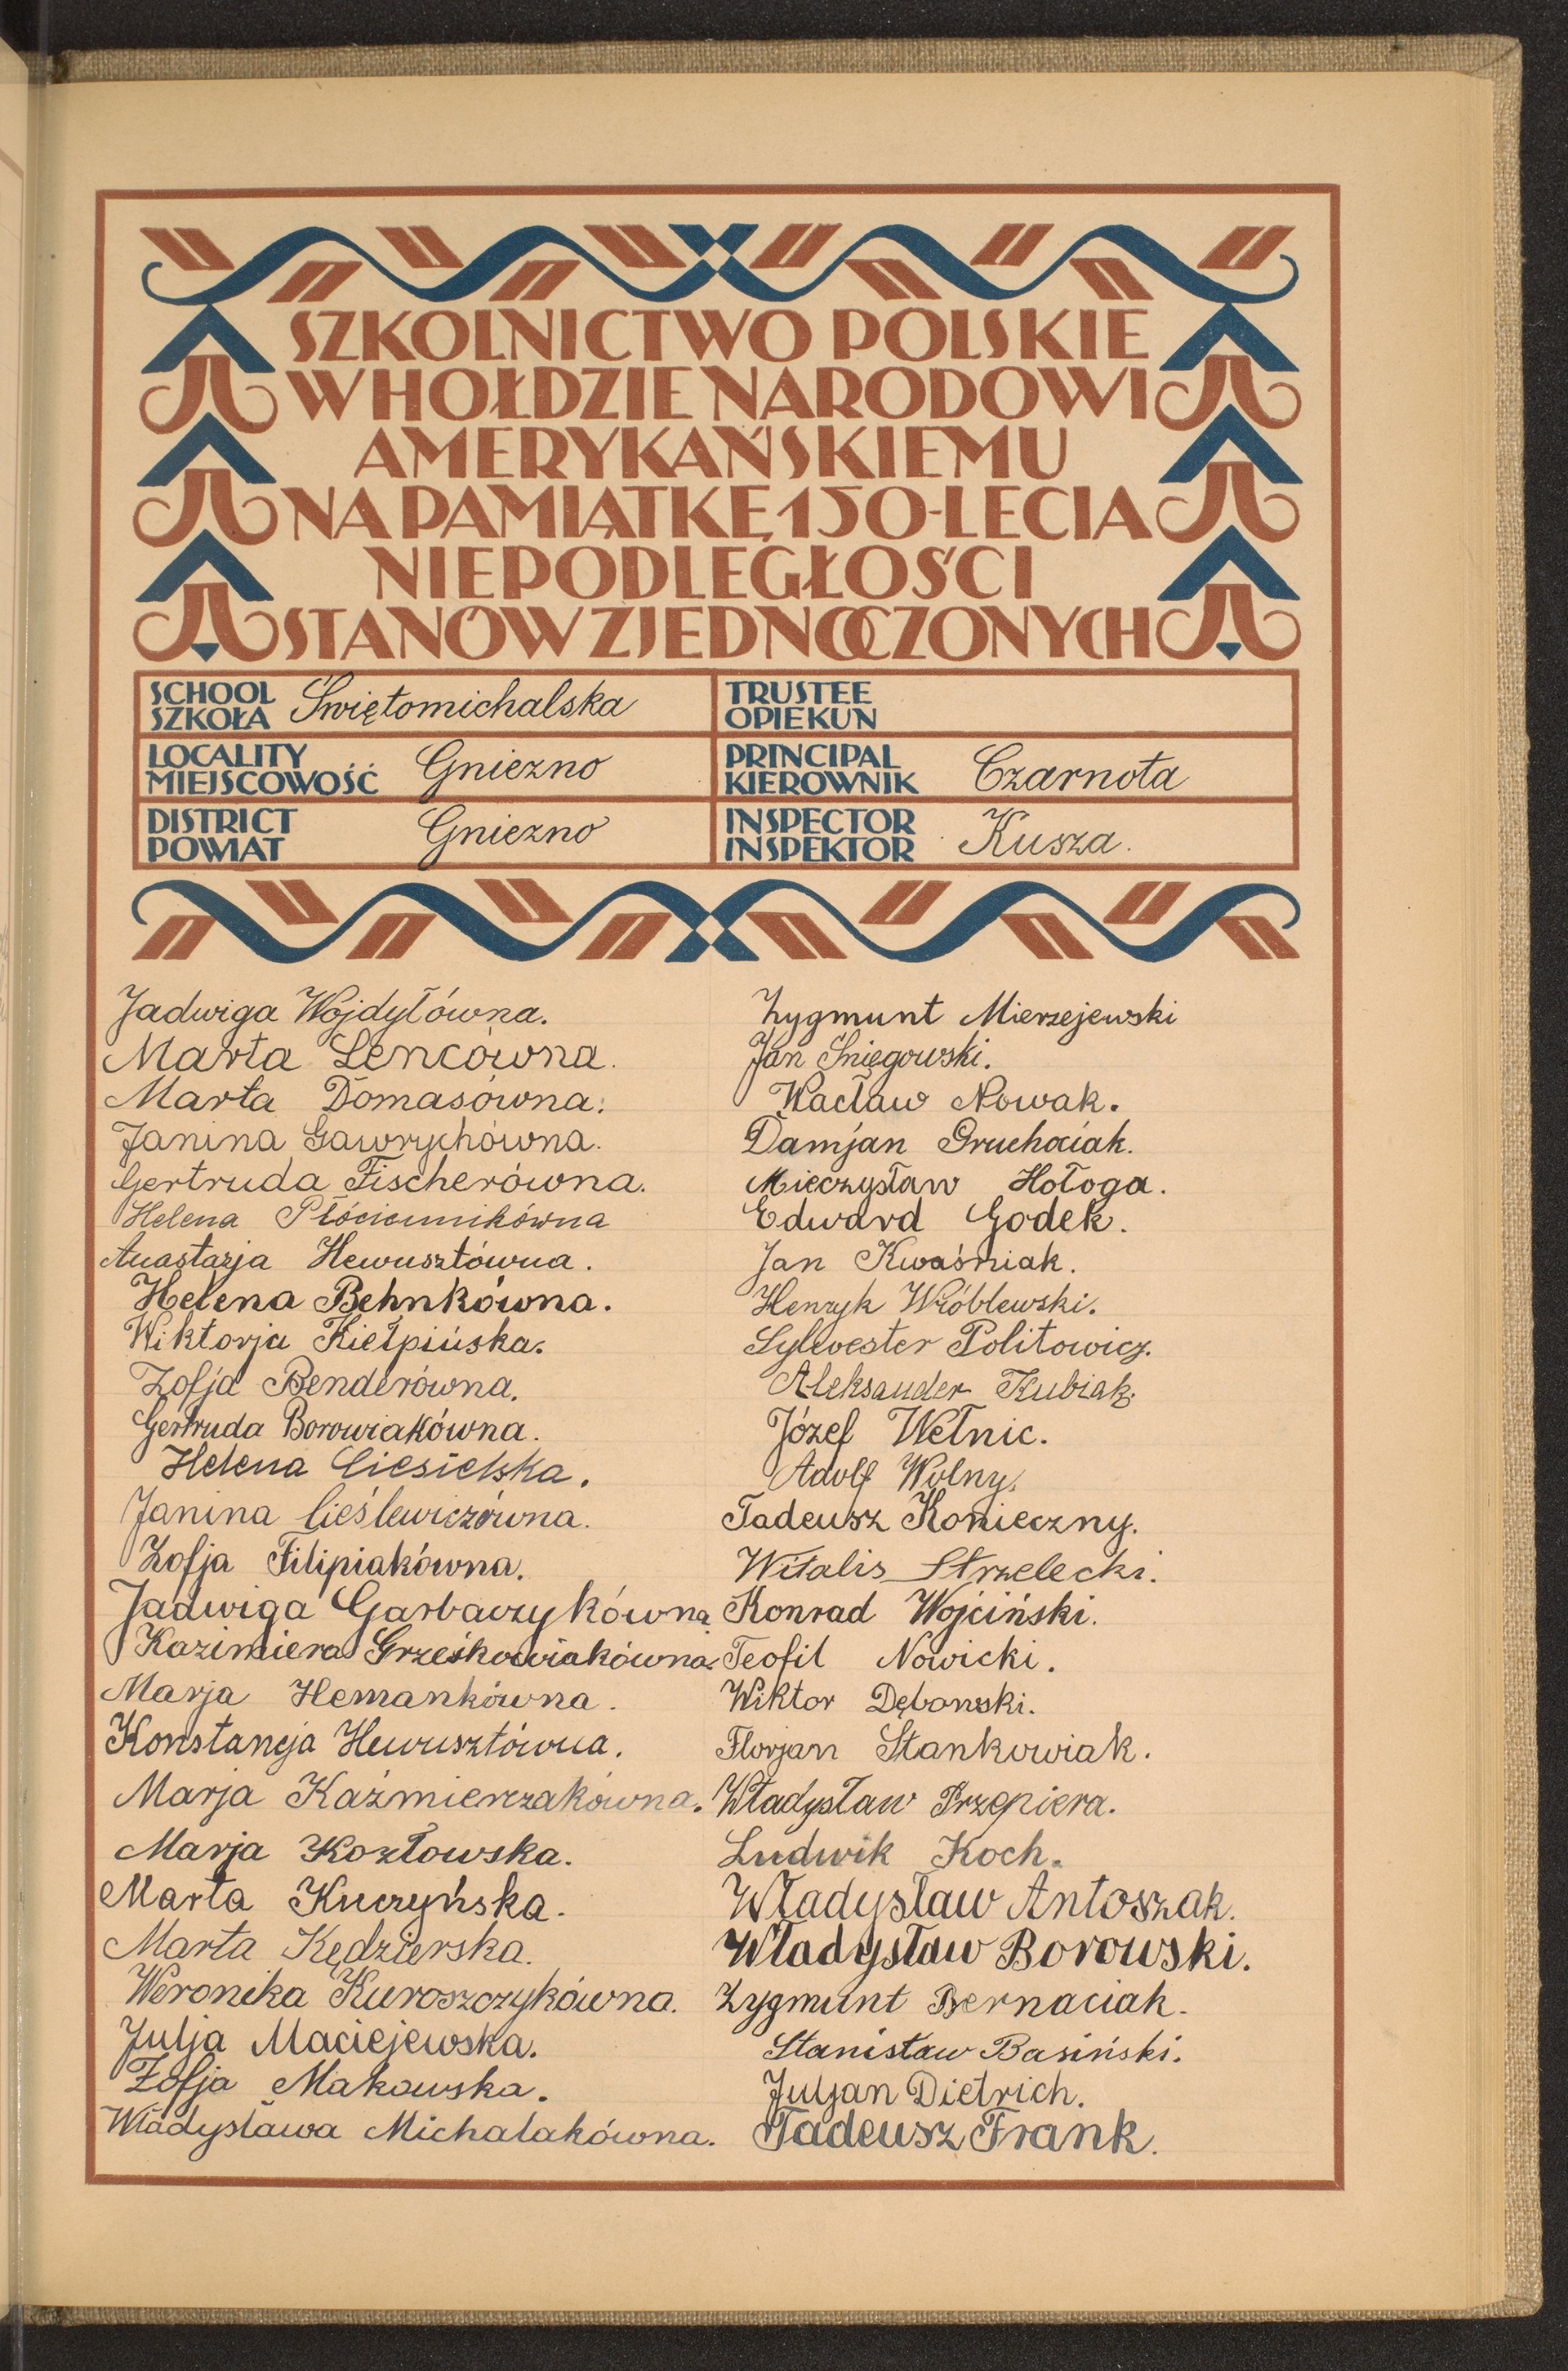 SZKOLNICTWO POLSKIE
W HOŁDZIE NARODOWI
AMERYKAŃSKIEMU
NA PAMIĄTKĘ 150-LECIA
NIEPODLEGŁOŚCI
STANÓW ZJEDNOCZONYCH
SCHOOL
SZKOŁA
Świętomichalska
TRUSTEE
OPIEKUN
LOCALITY
MIEJSCOWOŚĆ
Gniezno
PRINCIPAL
KIEROWNIK
Czarnota
DISTRICT
POWIAT
Gniezno
INSPECTOR
INSPEKTOR
Kusza.
Jadwiga Wojdyłówna.
Marta Lencówna.
Marta Domasówna.
Janina Gawrychówna.
Gertruda Fischerówna.
Helena Płóciennikówna
Anastazja Hewusztówna.
Helena Behnkówna.
Wiktorja Kiełpińska.
Zofja Benderówna.
Gertruda Borowiakówna.
Helena Ciesielska.
Janina Cieślewiczówna.
Zofja Filipiakówna.
Jadwiga Garbaczykówna
Kazimiera Grześkowiakówna.
Marja Hemankówna.
Konstancja Hewusztówna.
Marja Kaźmierczakówna.
Marja Kozłowska.
Marta Kuczyńska.
Marta Kędzierska.
Weronika Kuroszczykówna.
Julja Maciejewska.
Zofja Makowska.
Władysława Michalakówna.
Zygmunt Mierzejewski
Jan Śniegowski.
Wacław Nowak.
Damjan Gruchociak.
Mieczysław Hołoga.
Edward Godek.
Jan Kwaśniak.
Henryk Wróblewski.
Sylwester Politowicz.
Aleksander Kubiak.
Józef Wełnic.
Adolf Wolny.
Tadeusz Konieczny.
Witalis Strzelecki.
Konrad Wojciński.
Teofil Nowicki.
Wiktor Dębowski.
Florjan Stankowiak.
Władysław Przepiera.
Ludwik Koch.
Władysław Antoszak.
Władysław Borowski.
Zygmunt Bernaciak.
Stanisław Basiński.
Juljan Dietrich.
Tadeusz Frank.